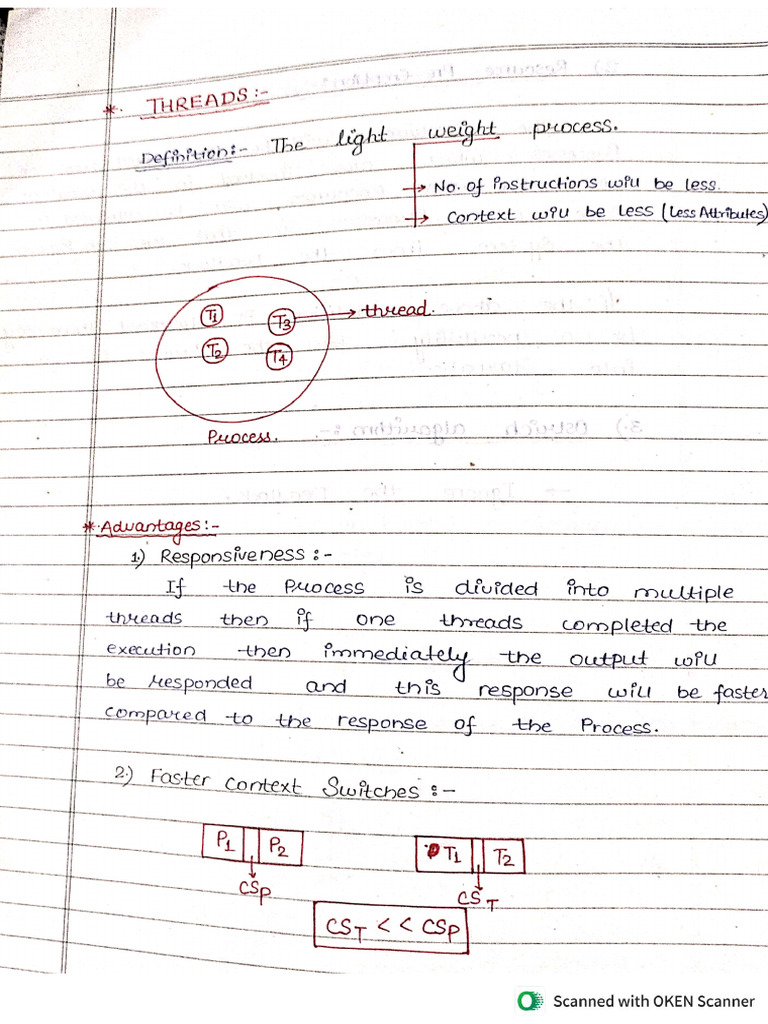 * THREADS:-
Definition:- The light weight process.
→ No. of instructions will be less.
→ Context will be less (Less Attributes)
T1 T3 → thread.
T2 T4
Process.
* Advantages:-
1.) Responsiveness :-
If the Process is divided into multiple
threads then if one threads completed the
execution then immediately the output will
be responded and this response will be faster
compared to the response of the Process.
2.) Faster Context Switches :-
P1 P2 T1 T2
CSP CST
CST << CSP
Scanned with OKEN Scanner